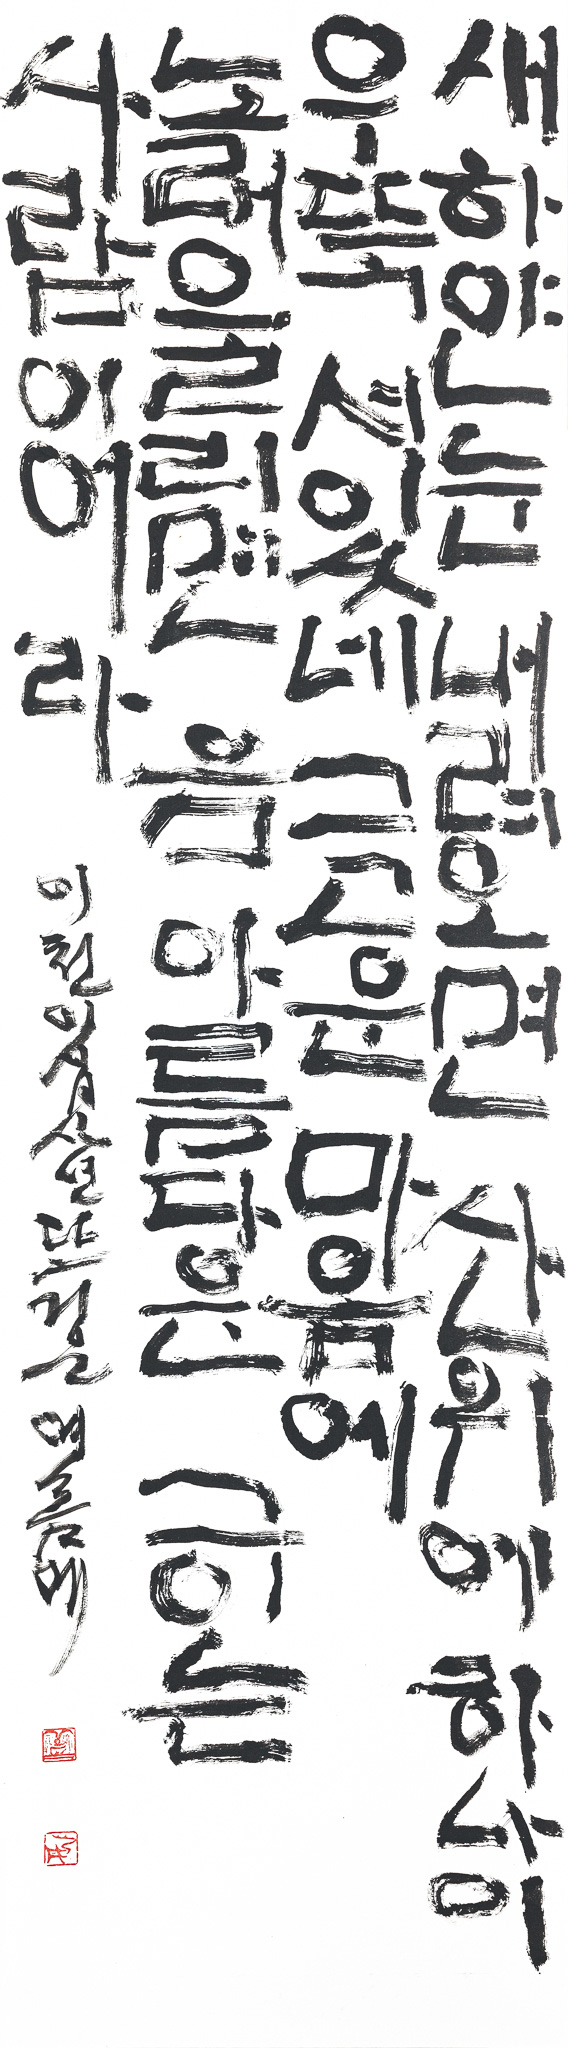 새하얀눈 내려오면 산위에 하나이
우뚝 셔있네 그고운 마음에
노래울리면 음 아름다운 그이는
사람이어 라
이천이십삼년뜨거운 여름에